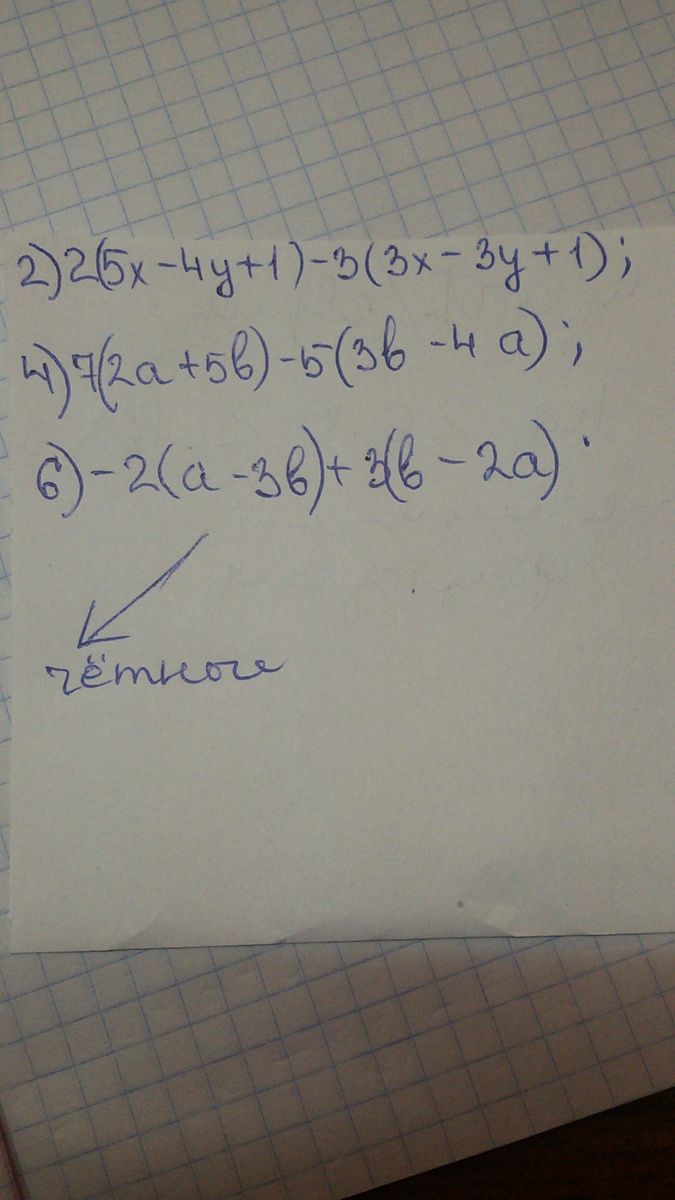 2) 2(5x-4y+1)-3(3x-3y+1);
4) 7(2a+5b)-5(3b-4a);
6) -2(a-3b)+3(b-2a).
чётные